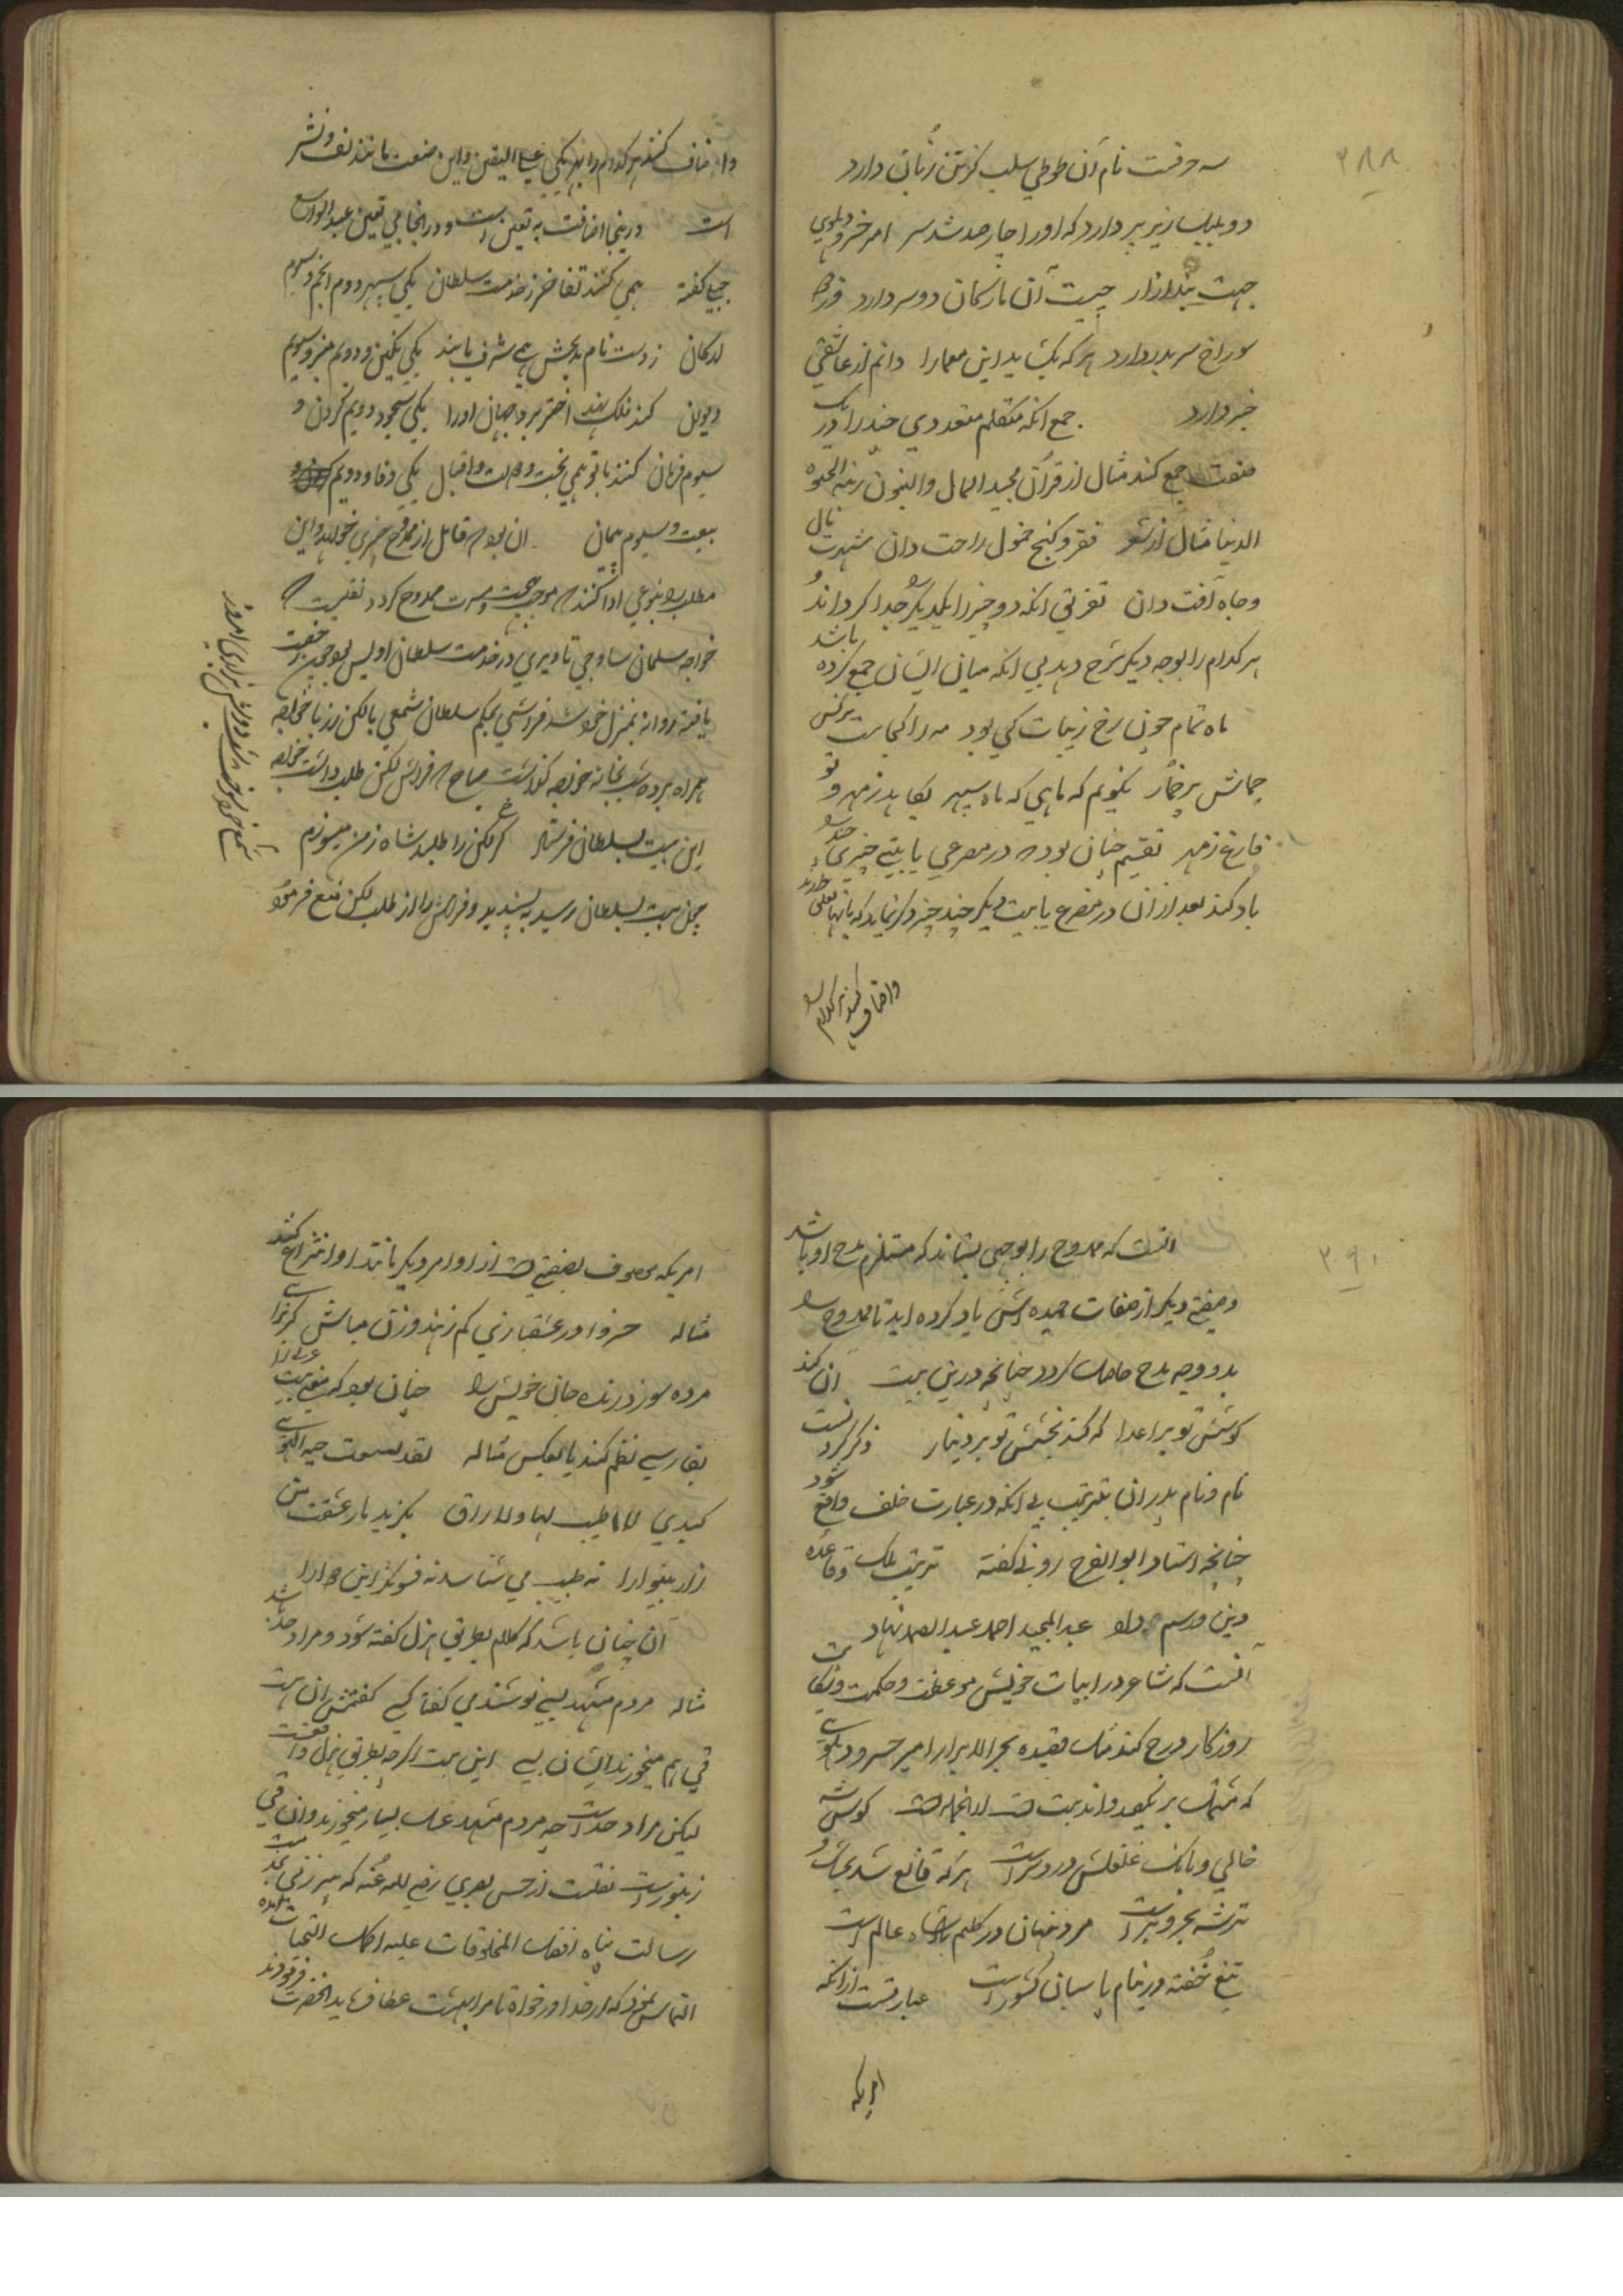 ۲۸۸
سه حرفست نام آن طوطی سلب کزتن زبان دارد
دو بلبل زیر پر دارد که او را چار صد شد سر امیر خسرو دهلوی
جهت بند ازار چیست آن مار کمان دو سر دارد
سوراخ سر بدر دارد هر که بکشاید این معما را دانم از عاشقی
خبر دارد جمع انکه متکلم متعددی چند را در یک
صفت جمع کند مثال از قرآن مجید المال والبنون زینة الحیوة
الدنیا مثال از شعر فقر و کنج خمول راحت دان شهرت مال
و جاه آفت دان تفریق انکه دو چیز را از یکدیکر جدا کرداند و
هر کدام را بوجه دیکر شرح دهد بی انکه میان ایشان جمع کرده باشد
ماه تمام چون رخ زیبات کی بود مه را کجاست نرکس
جماش پر خمار نکویم که ماهی که ماه سپهر بکاهد ز مهر و تو
فارغ ز مهر تقسیم چنان بود که در مصرعی یا بیتی چیزی چند را
یاد کند بعد از ان در مصرع یا بیت دیکر چند چیز ذکر نماید که بانها تعلق دارند
واضافت کنند هر کدام را
واضافت کنند هر کدام را بهر یکی علی الیقین و این صنعت مانند لف و نشر
است درینجا اضافت به تعین است و در انجا بی تعین عبد الواسع
جبلی گفته همی کنند تفاخر ز خدمت سلطان یکی سپهر و دوم انجم و سیوم
ارکان ز دست نام بخشش همی شرف یابند یکی نکین و دویم منبر و سیوم
دیوان کند فلک نهد اختر برد جهان او را یکی سجود و دویم کردن و
سیوم فرمان کنند با تو همی بخت و دولت و اقبال یکی وفا و دویم
بیعت و سیوم پیمان ان بود که قایل از ممدوح چیزی خواهد و این
مطلب را بنوعی ادا کند که موجب بهجت و مسرت ممدوح کردد نقلست که
خواجه سلمان ساوجی تا دیری در خدمت سلطان اویس بود چون رخصت
یافته روانه منزل خود شد فراشی بحکم سلطان شمعی با لکن زر با خواجه
همراه برده شب بخانه خواجه کذاشت صباح که فراش لکن طلب داشت خواجه
این بیت بسلطان فرستاد کر لکن را طلبد شاه ز من میسوزم
چون بیت بسلطان رسید به پسندید و فراش را از طلب لکن منع فرمود
شمع خود سوخت شب دوش بزاری امروز
۲۹۰
انست که ممدوح را بوجهی بستاند که مستلزم مدح او باشد
و صفتی دیکر از صفات حمیده اش یاد کرده اید تا ممدوح را
بدو وجه مدح حاصل کردد چنانچه درین بیت آن کند
کوشش تو بر اعدا که کند بخشش تو بر دینار ذکر کردنست
نام و نام پدران بترتیب بی انکه در عبارت خلف واقع شود
چنانچه استاد ابوالفرج رونی کفته ترتیب ملک و قاعده
دین و رسم داد عبد المجید احمد عبد الصمد نهاد
آنست که شاعر در ابیات خویش موعظت و حکمت و شکایت
روزکار درج کند مثل قصیده بحر الابرار امیر خسرو دهلوی
که مثلهاست کوس شه
خالی و بانک غلغلش درد سر است هر که قانع شد بخشک و
تر شه بحر و بر است مرد پنهان در کلیم پادشاه عالم است
تیغ خفته در نیام پاسبان کشور است عبارتست از انکه
امریکه
امریکه موصوف بصفتی است از او امر دیکر مانند او انتزاع کنند
مثاله خسروا در عشقبازی کم ز هندو زن مباش کز برای
مرده سوزد زنده جان خویش را چنان بود که بیت عربی را
بفارسی نظم کنند یا بعکس مثاله لقد لسعت حیة الهوی
کبدی فلا طبیب لها ولا راق بکزید مار عشقت من
زار بینوا را نه طبیب می شناسد نه فسونکر این دوا را
آن چنان باشد که کلام بطریق هزل کفته شود و مراد جد باشد
مثاله مردم مشهد بسی نوشند می کفتا کسی کفتمش ان هست
قی هم میخورند ایشان بسی این بیت اکرچه بطریق هزل واقعست
لیکن مراد جد است چه مردم مشهد عسل بسیار میخورند و ان قی
زنبور است نقلست از حسن بصری رضی الله عنه که پیر زنی بخدمت
رسالت پناه افضل المخلوقات علیه اکمل التحیات آمده
التماس نمود که از خدا در خواه تا مرا بهشت عطا فرماید انحضرت فرمودند